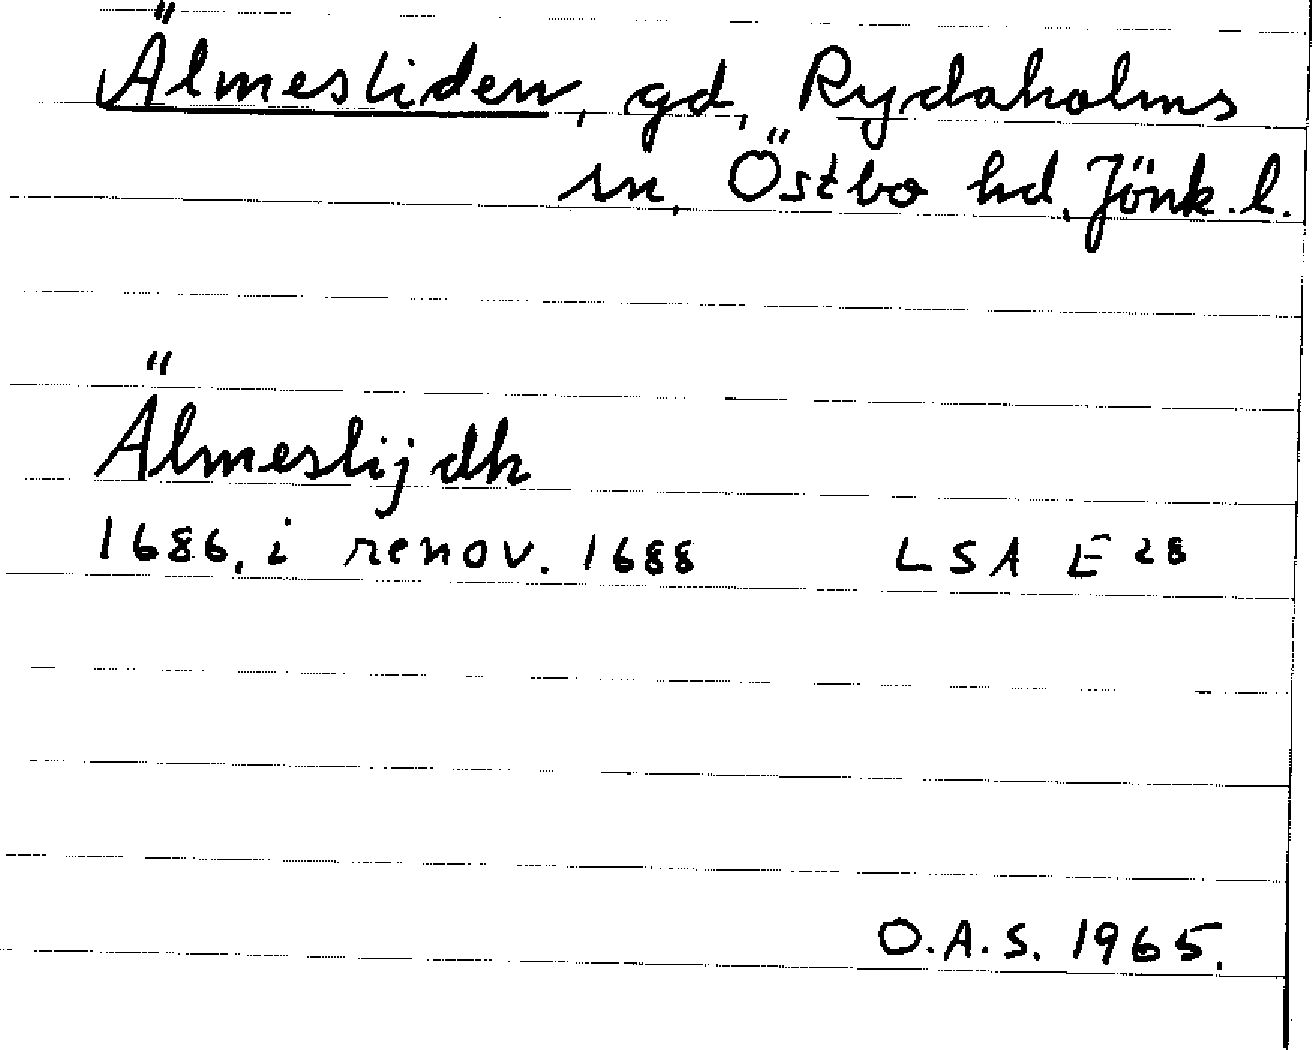 Älmesliden, gd, Rydaholms
sn, Östbo hd, Jönk. l.
Älmeslijdh
1686, i renov. 1688 LSA E 28
O.A.S. 1965.